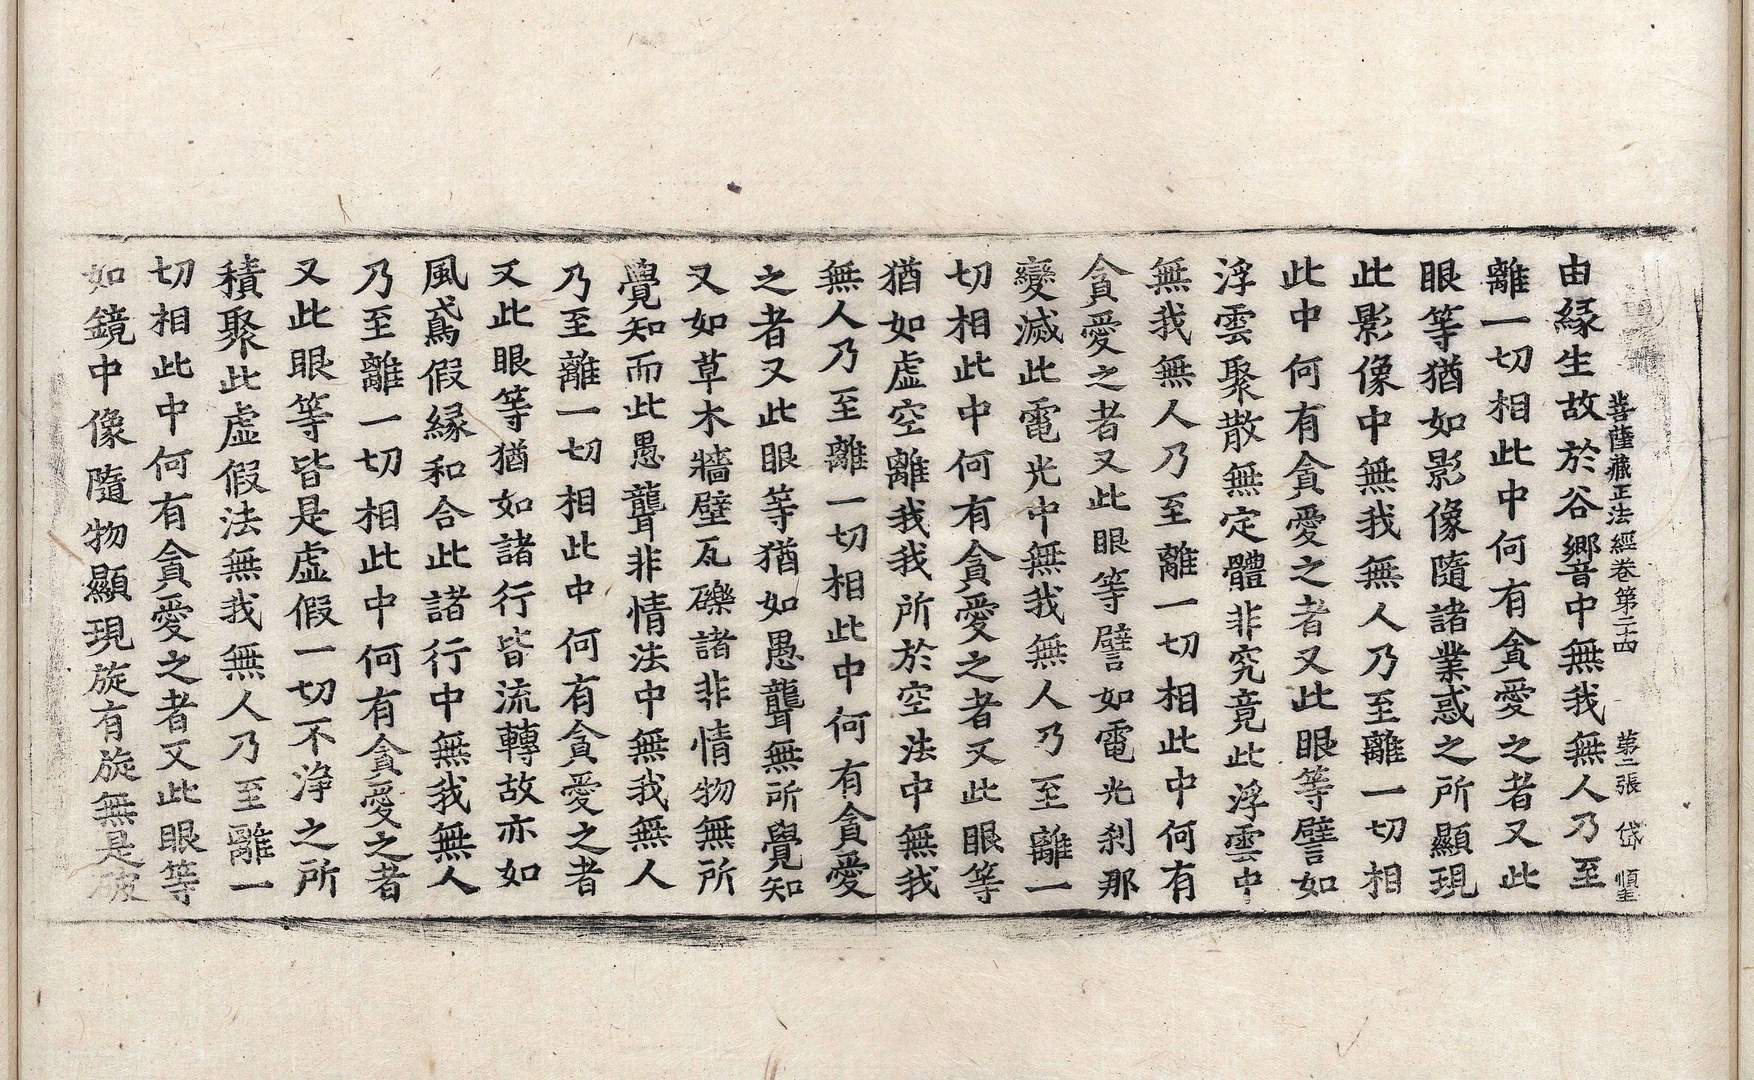 菩薩藏正法經卷第二十四　第二張　岱
由緣生故於谷響中無我無人乃至
離一切相此中何有貪愛之者又此
眼等猶如影像隨諸業惑之所顯現
此影像中無我無人乃至離一切相
此中何有貪愛之者又此眼等譬如
浮雲聚散無定體非究竟此浮雲中
無我無人乃至離一切相此中何有
貪愛之者又此眼等譬如電光剎那
變滅此電光中無我無人乃至離一
切相此中何有貪愛之者又此眼等
猶如虛空離我我所於空法中無我
無人乃至離一切相此中何有貪愛
之者又此眼等猶如愚聾無所覺知
又如草木牆壁瓦礫諸非情物無所
覺知而此愚聾非情法中無我無人
乃至離一切相此中何有貪愛之者
又此眼等猶如諸行皆流轉故亦如
風鳶假緣和合此諸行中無我無人
乃至離一切相此中何有貪愛之者
又此眼等皆是虛假一切不淨之所
積聚此虛假法無我無人乃至離一
切相此中何有貪愛之者又此眼等
如鏡中像隨物顯現旋有旋無是破